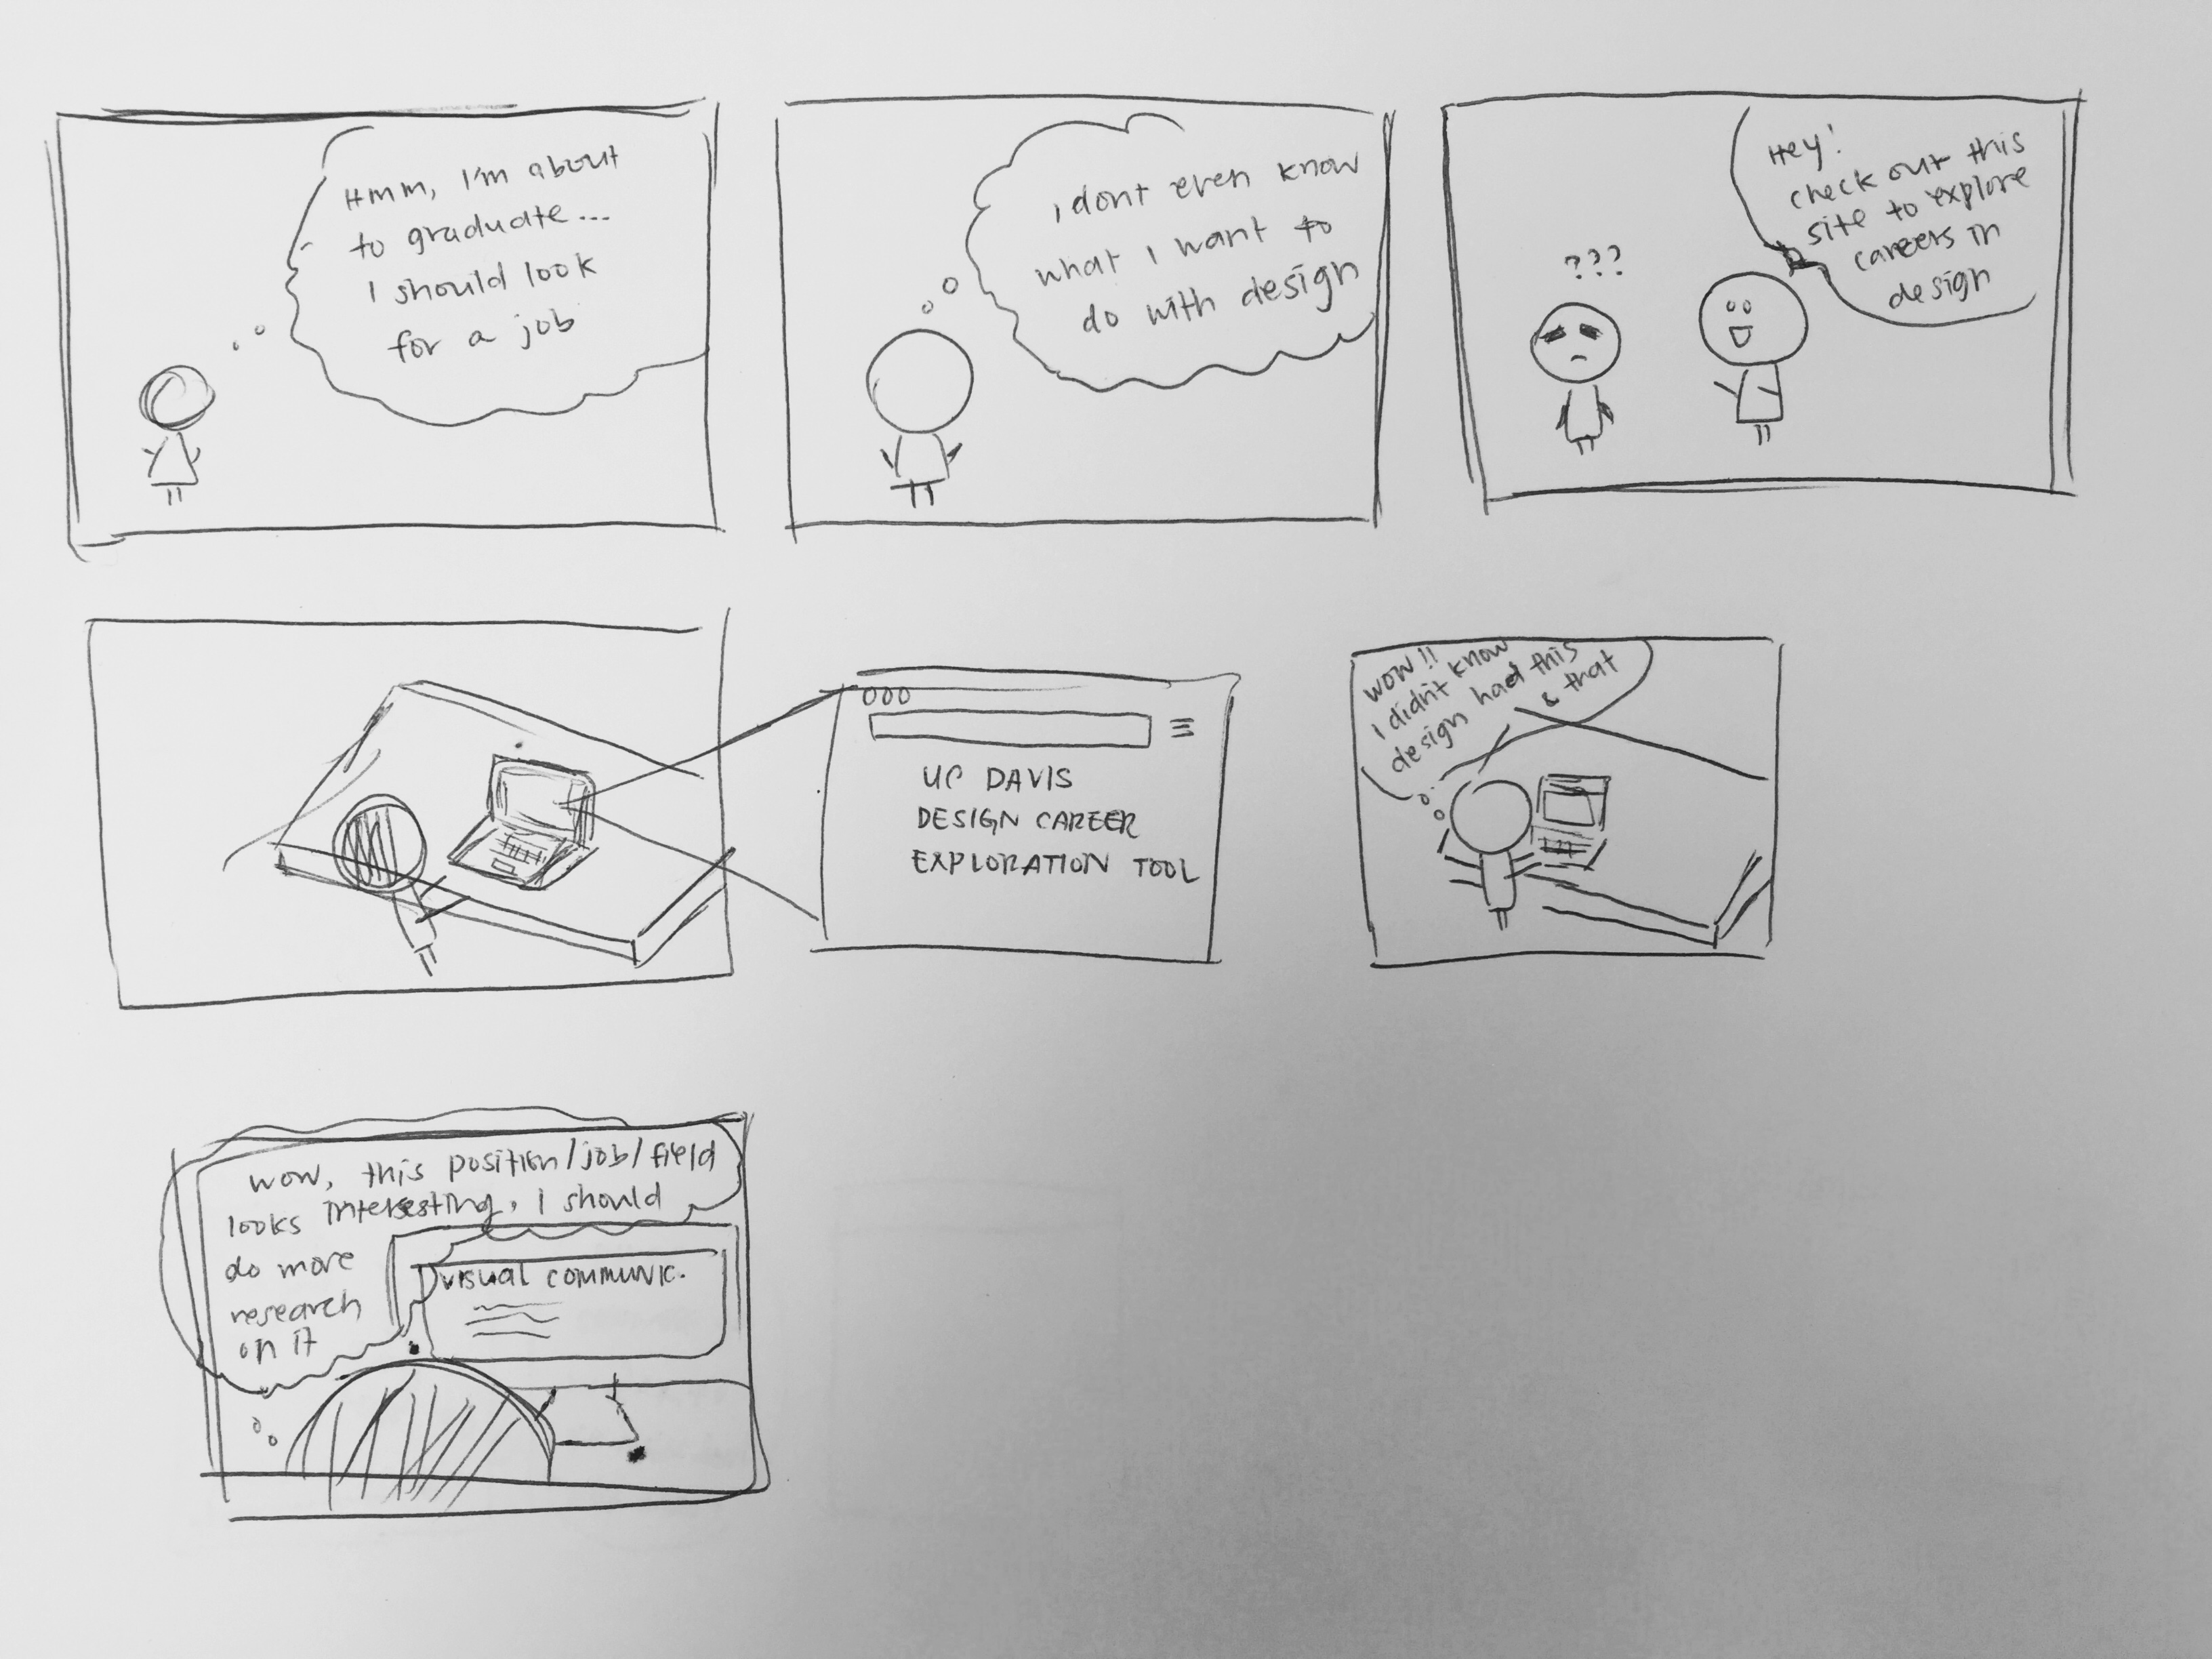 Hmm, I'm about
to graduate...
I should look
for a job
I dont even know
what I want to
do with design
???
Hey!
check out this
site to explore
careers in
design
UC DAVIS
DESIGN CAREER
EXPLORATION TOOL
WOW!!
I didn't know
design had this
& that
wow, this position/job/field
looks interesting, I should
do more
research
on it
VISUAL COMMUNIC.